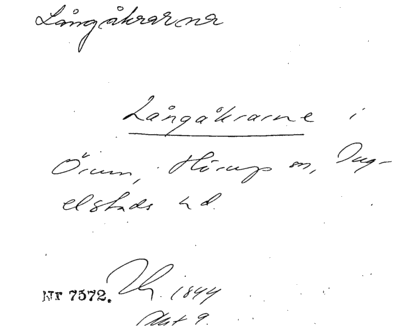 Långåkrarna
Långåkrarne i
Örum, Hörups sn, Ing-
elstads hd.
Nr 7572. 1844
Akt 9.